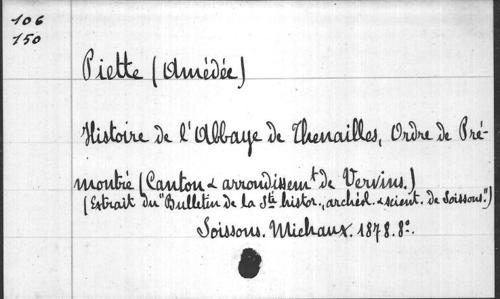 106
150
Piette (Amédée)
Histoire de l'Abbaye de Thenailles, Ordre de Pré-
montré (Canton & arrondissemt de Vervins.)
(Extrait du "Bulletin de la Sté histor., archéol. & scient. de Soissons.")
Soissons. Michaux. 1878. 8º.